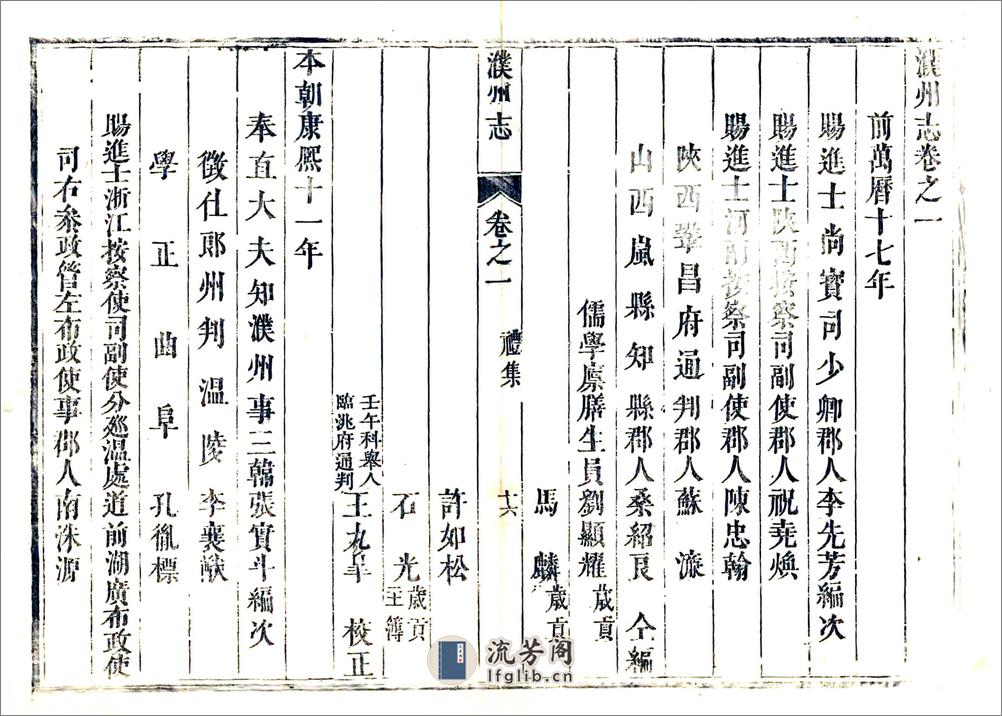 濮州志卷之一
前萬曆十七年
賜進士尚寶司少卿郡人李先芳編次
賜進士陝西按察司副使郡人祝堯煥
賜進士河南按察司副使郡人陳忠翰
陝西鞏昌府通判郡人蘇濂
山西嵐縣知縣郡人桑紹良仝編
儒學廪膳生員劉顯耀歲貢
馬麟歲貢
濮州志 卷之一 禮集 十六
許如松
石光歲貢主簿
壬午科舉人臨洮府通判王丸皐校正
本朝康熙十一年
奉直大夫知濮州事三韓張實斗編次
徵仕郎州判溫陵李襄猷
學正曲阜孔胤標
賜進士浙江按察使司副使分廵溫處道前湖廣布政使
司右叅政管左布政使事郡人南洙源
流芳阁
lfglib.cn